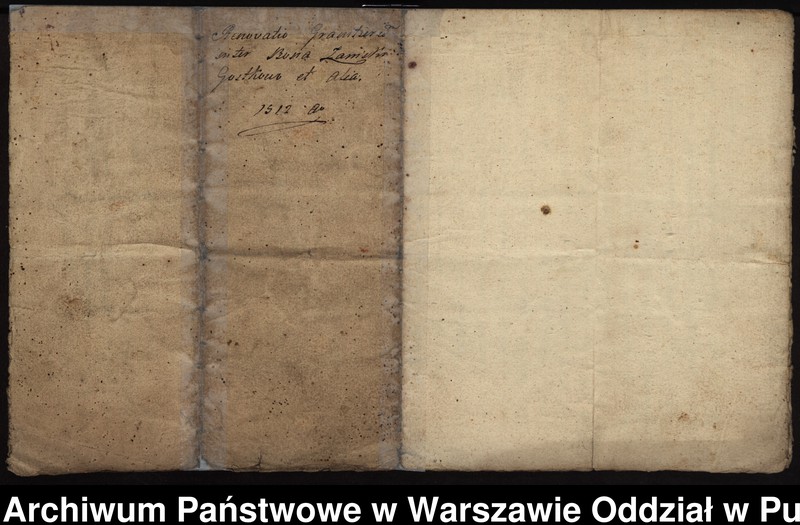 Renovatio Granitierū
inter Bona
Gostkowo et alia.
1512 ao
Archiwum Państwowe w Warszawie Oddział w Pu